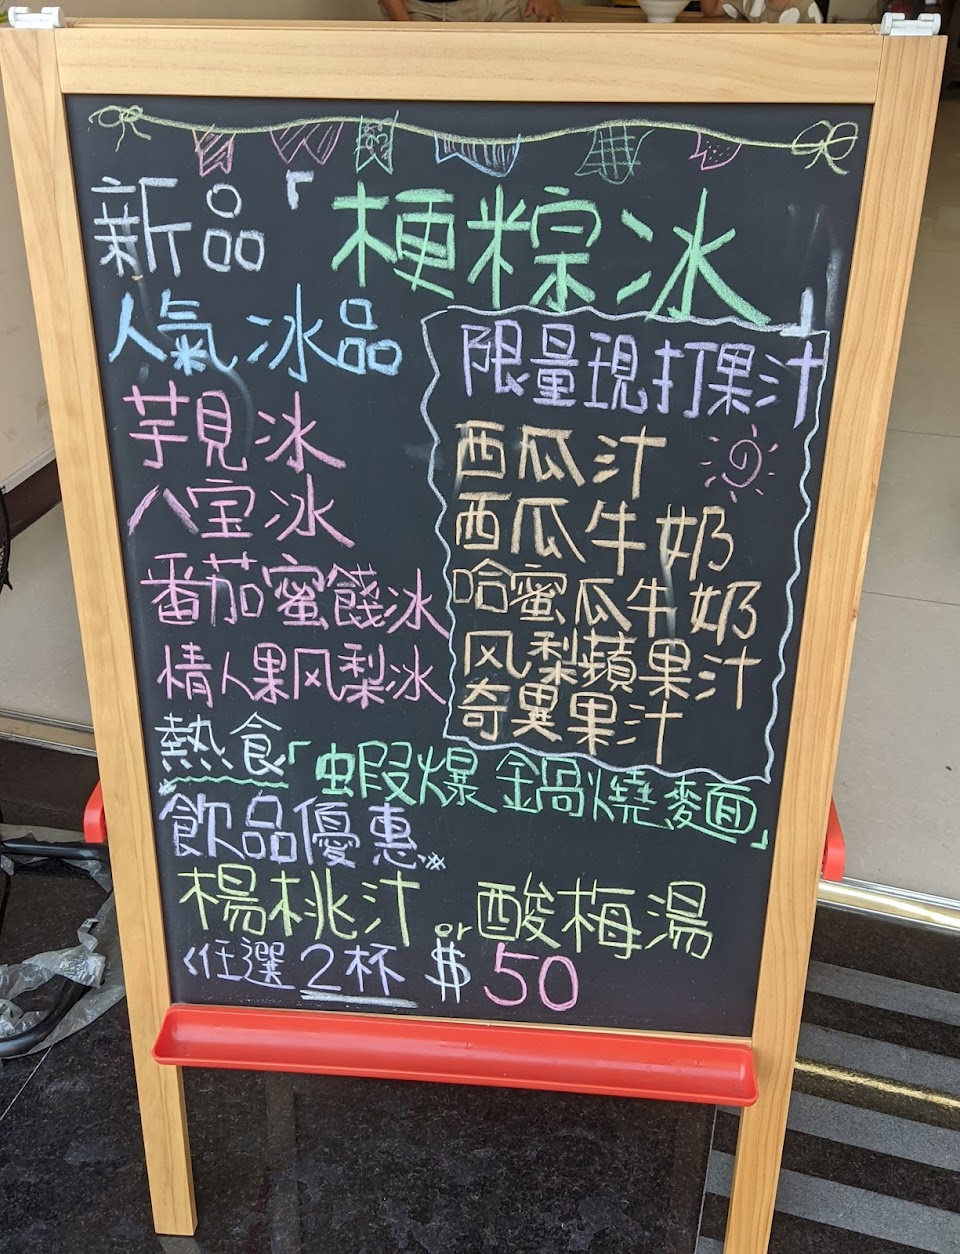 新品「梗粽冰」
人氣冰品
芋見冰
八宝冰
番茄蜜餞冰
情人果风梨冰
限量現打果汁
西瓜汁
西瓜牛奶
哈蜜瓜牛奶
风梨蘋果汁
奇異果汁
熱食「蝦爆鍋燒麵」
飲品優惠
楊桃汁 or 酸梅湯
<任選2杯 $50